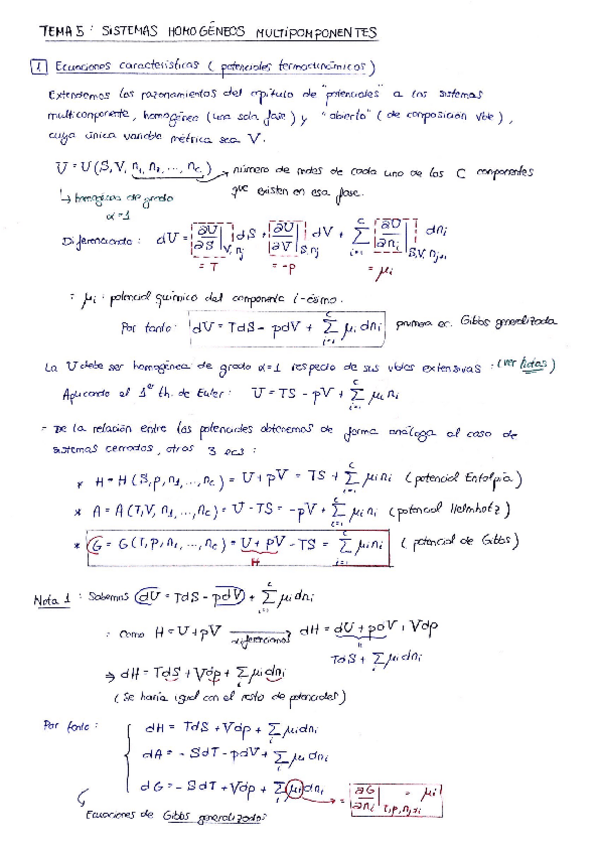 TEMA 5 : SISTEMAS HOMOGÉNEOS MULTIPOMPONENTES
1 Ecuaciones características ( potenciales termodinámicos )
Extendemos los razonamientos del capítulo de "potenciales" a los sistemas
multicomponente, homogéneo (una sola fase) y "abierto" ( de composición vble ),
cuya única variable métrica sea V.
U = U (S, V, n₁, n₂, ..., n_c ) → número de moles de cada uno de los C componentes
que existen en esa fase.
↳ homogénea de grado
α = 1
Diferenciando : dU = ∂U/∂S |V, nj dS + ∂U/∂V |S, nj dV + Σ(i=1, C) ∂U/∂ni |S, V, nj≠i dni
= T = -p = μi
= μi : potencial químico del componente i-ésimo.
Por tanto : dU = TdS - pdV + Σ(i=1, C) μi dni primera ec. Gibbs generalizada
La U debe ser homogénea de grado α = 1 respecto de sus vbles extensivas : (ver)
Aplicando el 1er th. de Euler : U = TS - pV + Σ(i=1, C) μi ni
= De la relación entre los potenciales obtenemos de forma análoga al caso de
sistemas cerrados, otras 3 ecs :
* H = H (S, p, n₁, ..., n_c) = U + pV = TS + Σ(i=1, C) μi ni (potencial Entalpía)
* A = A (T, V, n₁, ..., n_c) = U - TS = -pV + Σ(i=1, C) μi ni (potencial Helmholtz)
* G = G (T, p, n₁, ..., n_c) = U + pV - TS = Σ(i=1, C) μi ni ( potencial de Gibbs)
H
Nota 1 : Sabemos dU = TdS - pdV + Σ(i=1, C) μi dni
: Como H = U + pV → diferenciamos dH = dU + pdV + Vdp
TdS + Σi μi dni
⇒ dH = TdS + Vdp + Σi μi dni
( Se haría igual con el resto de potenciales )
Por tanto : dH = TdS + Vdp + Σi μi dni
dA = - SdT - pdV + Σi μi dni
dG = - SdT + Vdp + Σi μi dni → = ∂G/∂ni |T, p, nj≠i = μi
Ecuaciones de Gibbs generalizadas